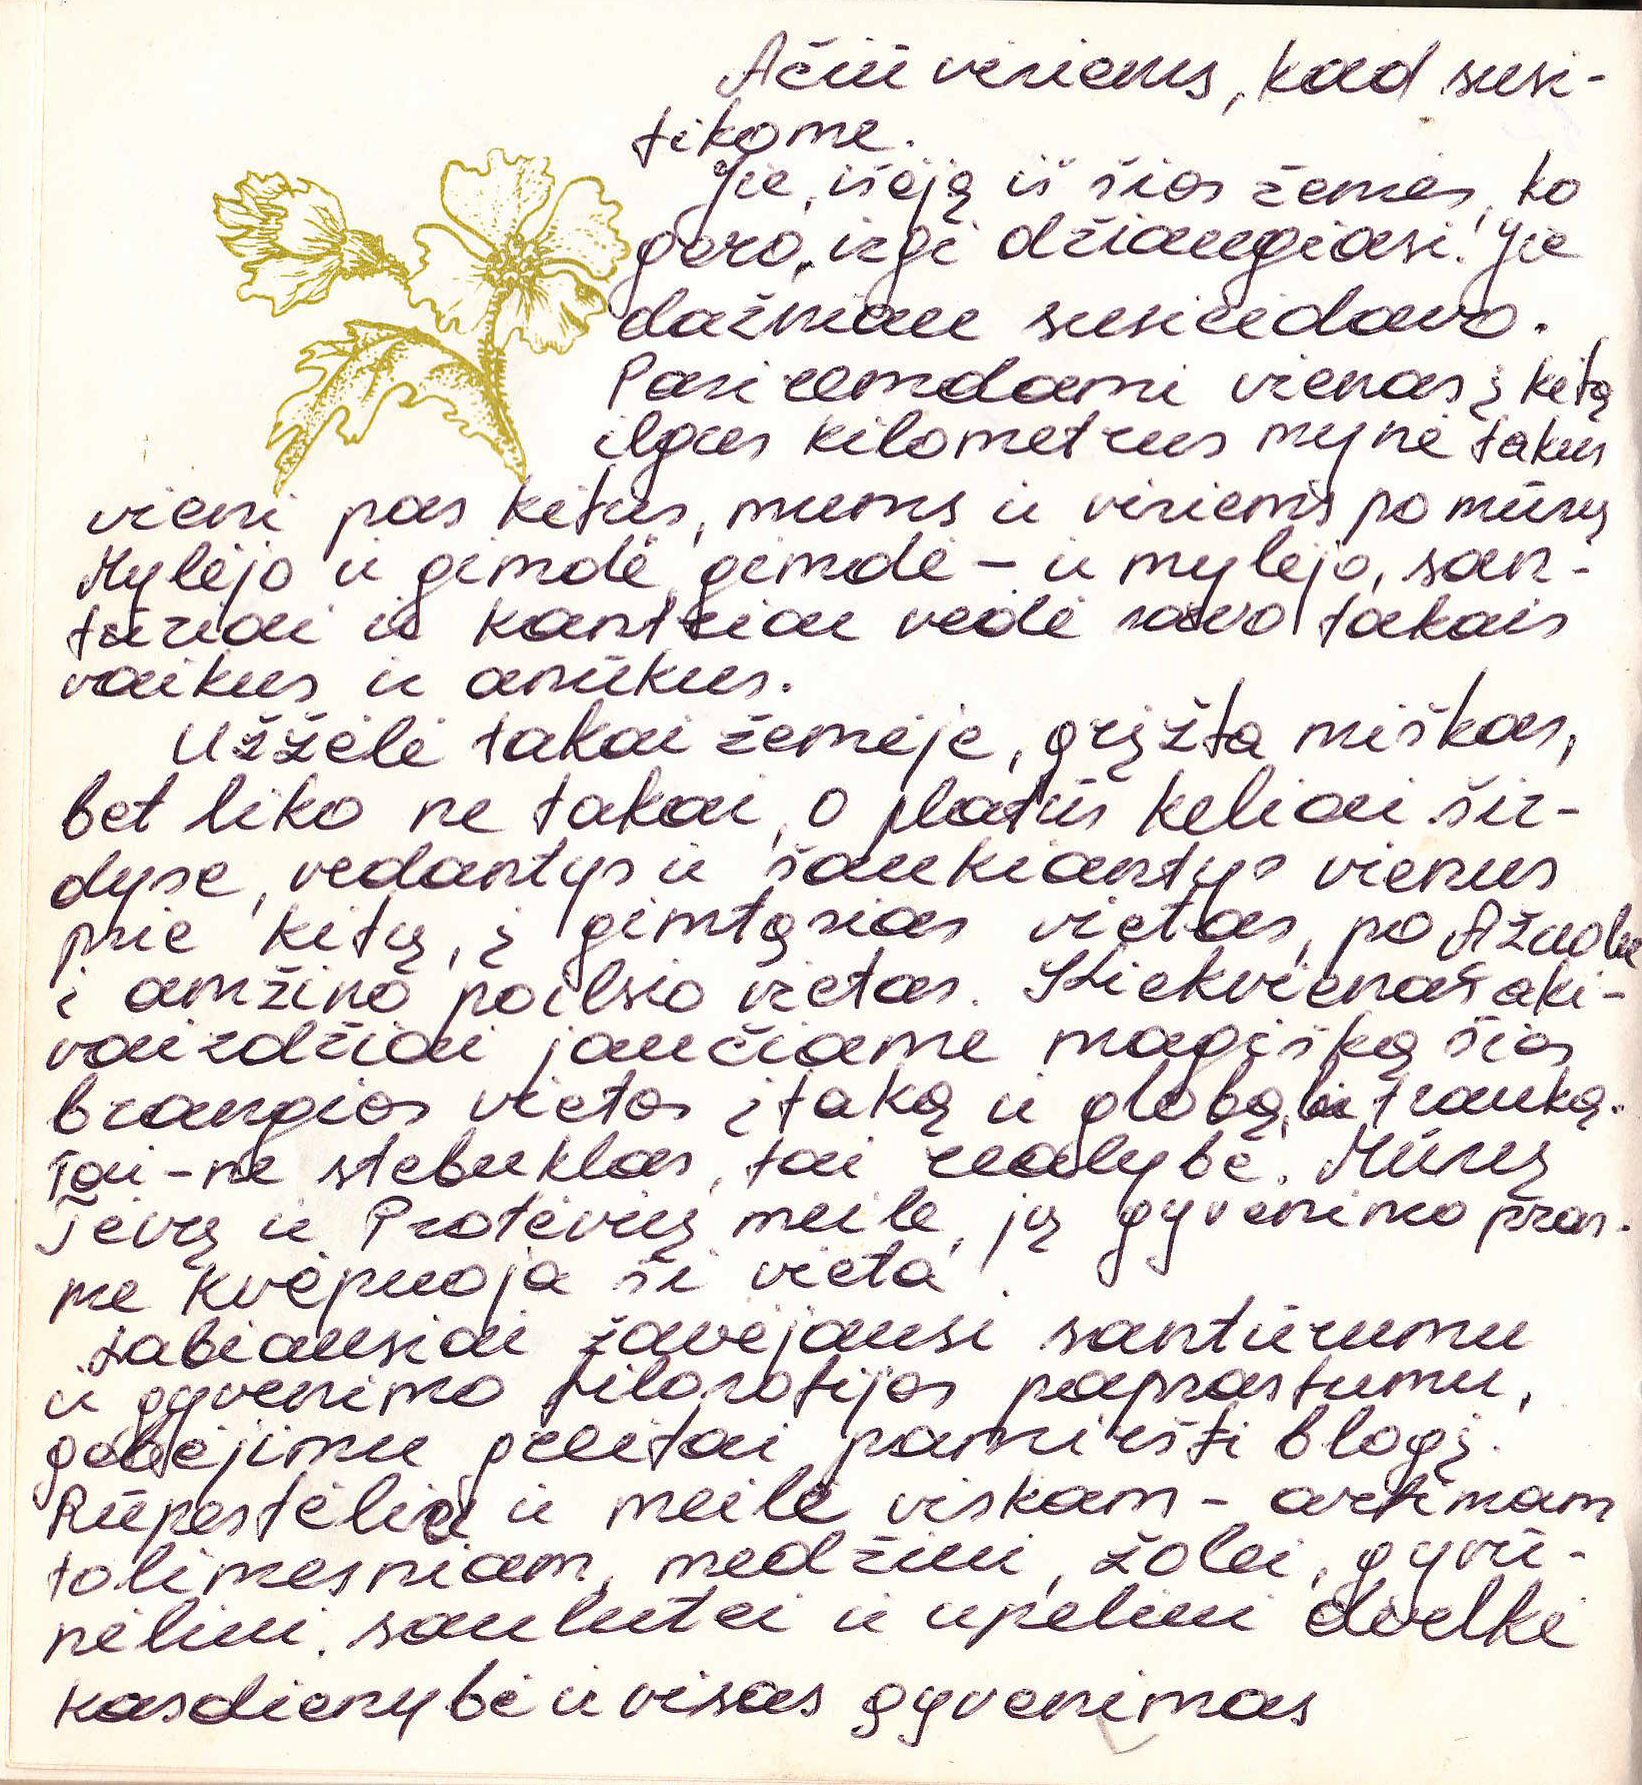 Ačiū visiems, kad susi-
tikome.
Jie, išėję iš šios žemės, ko
gero, irgi džiaugiasi. Jie
dažniau susieidavo.
Pasiremdami vienas į kitą
ilgus kilometrus mynė takus
vieni pas kitus, mums ir visiems po mūsų
Mylėjo ir gimdė, gimdė – ir mylėjo, san-
tūriai ir kantriai vedė savo takais
vaikus ir anūkus.
Užžėlė takai žemėje, grįžta miškas,
bet liko ne takai, o platūs keliai šir-
dyse, vedantys ir šaukiantys vienus
prie kitų, į gimtąsias vietas, po Ąžuolu
į amžino poilsio vietas. Kiekvienas aki-
vaizdžiai jaučiame magišką šios
brangios vietos įtaką ir globą, trauką.
Tai – ne stebuklas, tai realybė. Mūsų
Tėvų ir Protėvių meile, jų gyvenimo pras-
me kvėpuoja ši vieta.
Labiausiai žavėjausi santūrumu
ir gyvenimo filosofijos paprastumu,
gebėjimu greitai pamiršti blogį.
Rūpestėliu ir meile viskam – artimam
tolimesniam, medžiui, žolei, gyvū-
nėliui, saulutei ir upeliui dvelkė
kasdienybė ir visas gyvenimas